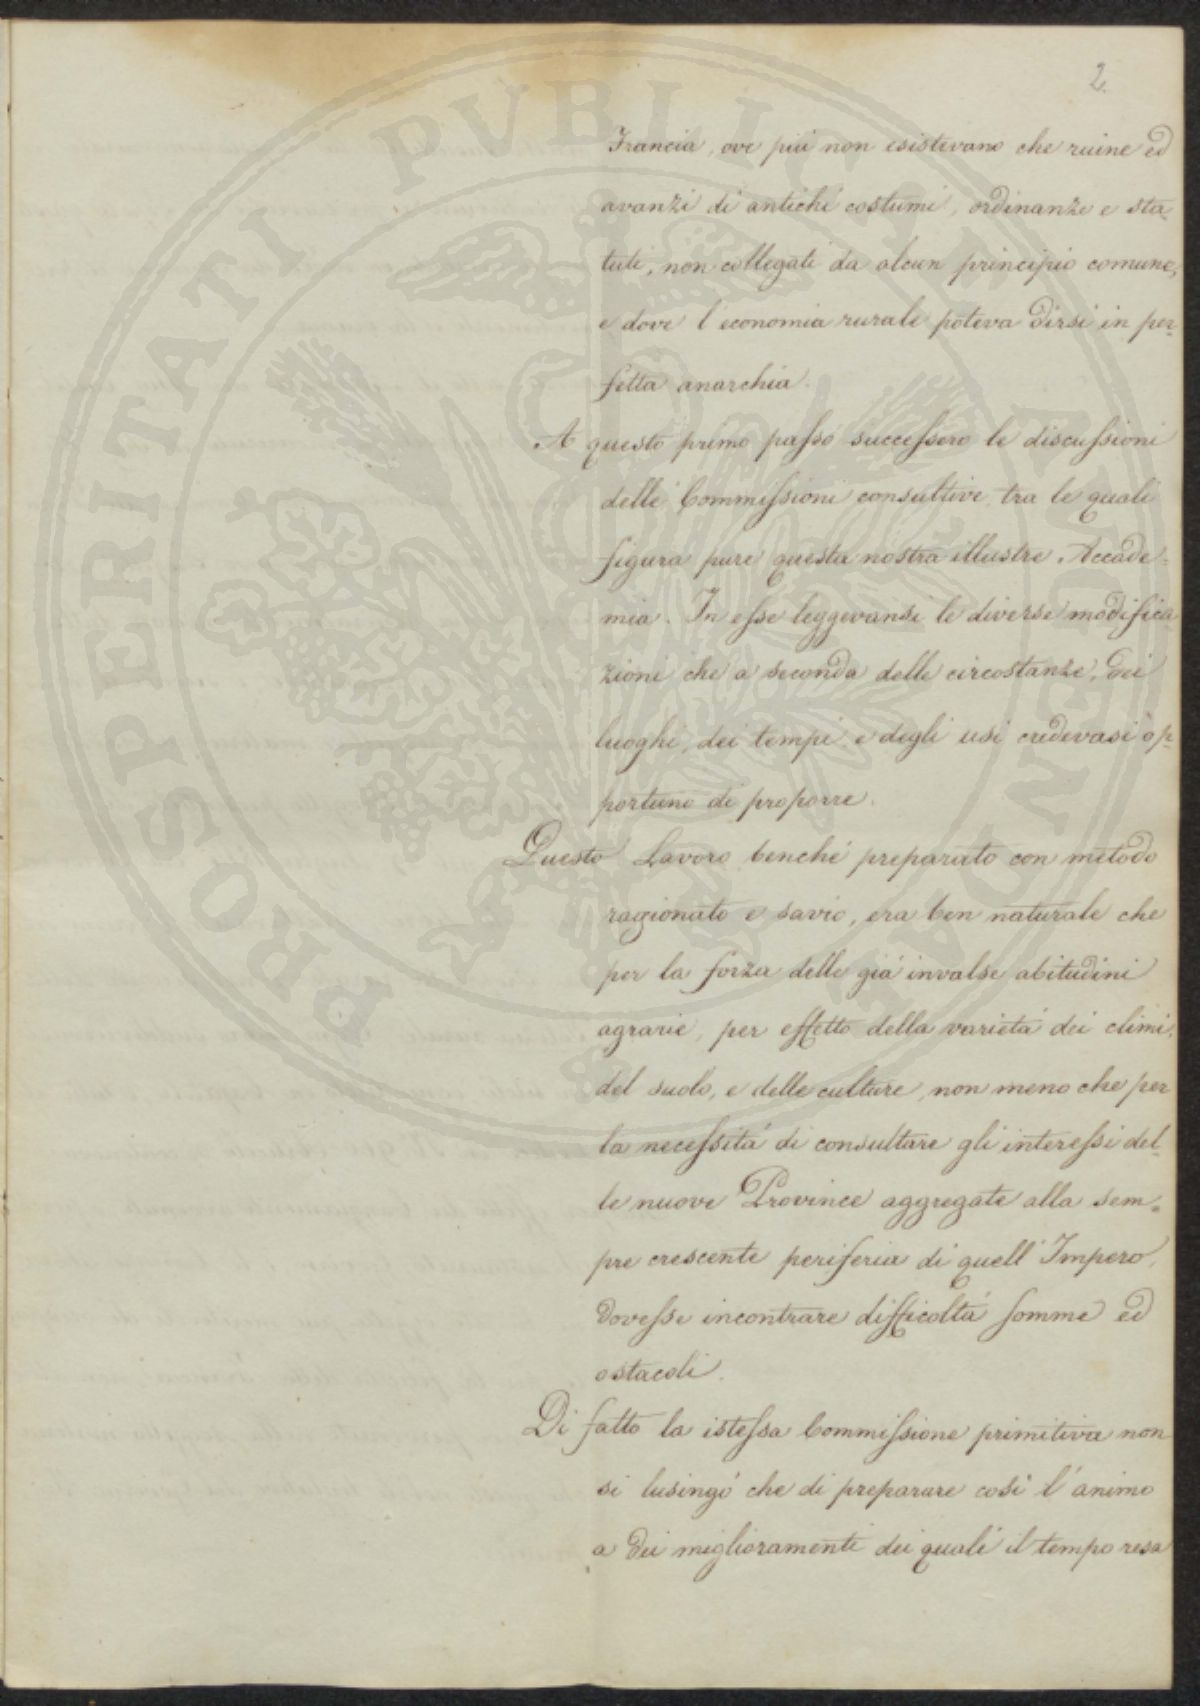 2.
Francia, ove più non esistevano che ruine ed
avanzi di antichi costumi, ordinanze e sta-
tuti, non collegati da alcun principio comune,
e dove l'economia rurale poteva dirsi in per-
fetta anarchia.
A questo primo passo successero le discussioni
delle Commissioni consultive, tra le quali
figura pure questa nostra illustre Accade-
mia. In esse leggevansi le diverse modifica-
zioni che a seconda delle circostanze, dei
luoghi, dei tempi e degli usi credevasi op-
portuno di proporre.
Questo Lavoro benché preparato con metodo
ragionato e savio, era ben naturale che
per la forza delle già invalse abitudini
agrarie, per effetto della varietà dei climi,
del suolo, e delle culture, non meno che per
la necessità di consultare gli interessi del-
le nuove Province aggregate alla sem-
pre crescente periferia di quell'Impero,
dovesse incontrare difficoltà somme ed
ostacoli.
Di fatto la istessa Commissione primitiva non
si lusingò che di preparare così l'animo
a dei miglioramenti dei quali il tempo resa
PROSPERITATI PVBLICAE AVGENDAE